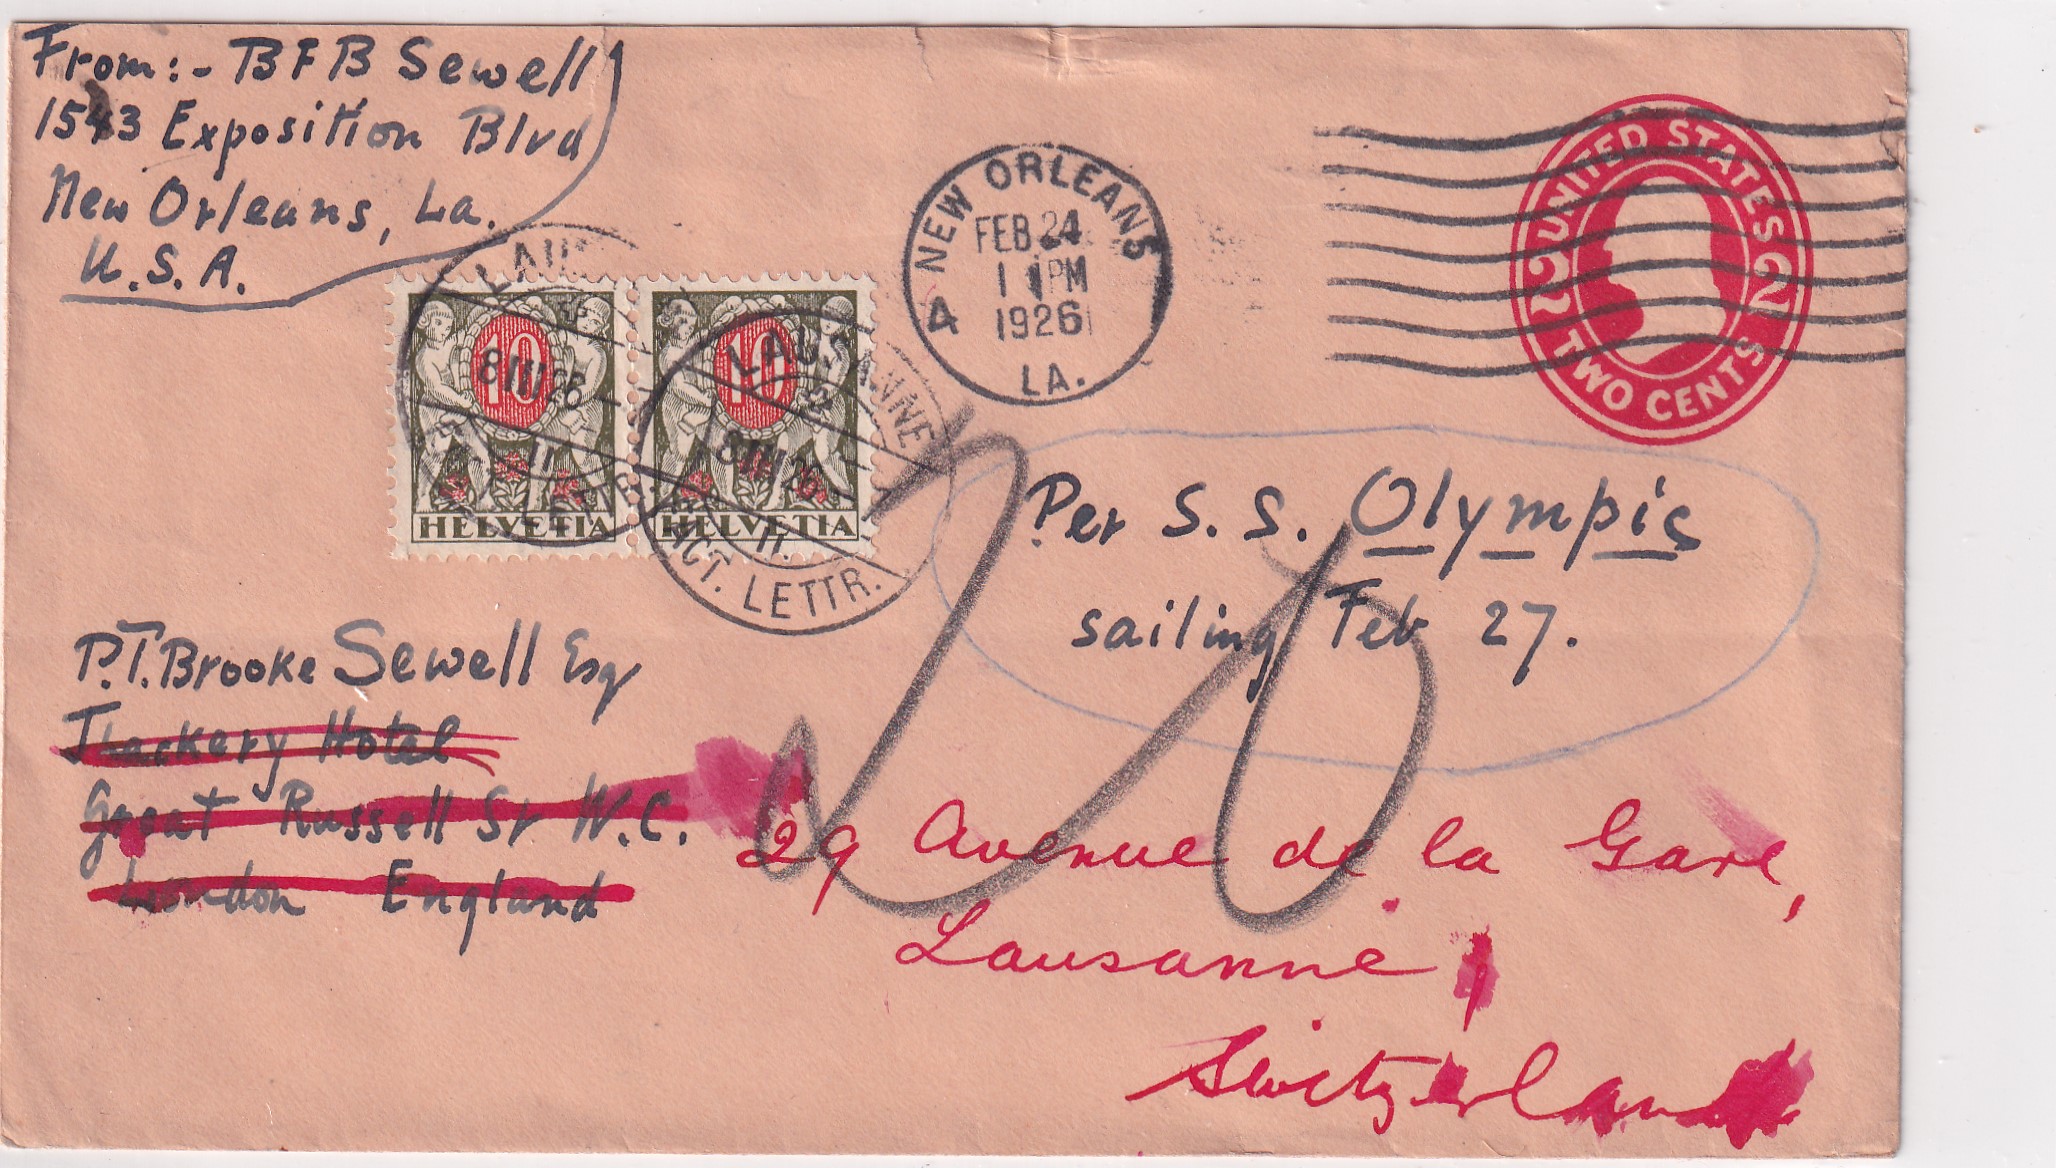 From:- BFB Sewell
1543 Exposition Blvd
New Orleans, La.
U.S.A.
NEW ORLEANS
FEB 24
1926
LA.
4
UNITED STATES
2 2
TWO CENTS
10
HELVETIA
10
HELVETIA
LAUSANNE
8 III 26
II
LAUSANNE
8 III 26
II.
LETTR.
Per S. S. Olympic
sailing Feb 27.
20
P.T. Brooke Sewell Esq
Thackery Hotel
Great Russell St W.C.
London England
29 Avenue de la Gare,
Lausanne,
Switzerland